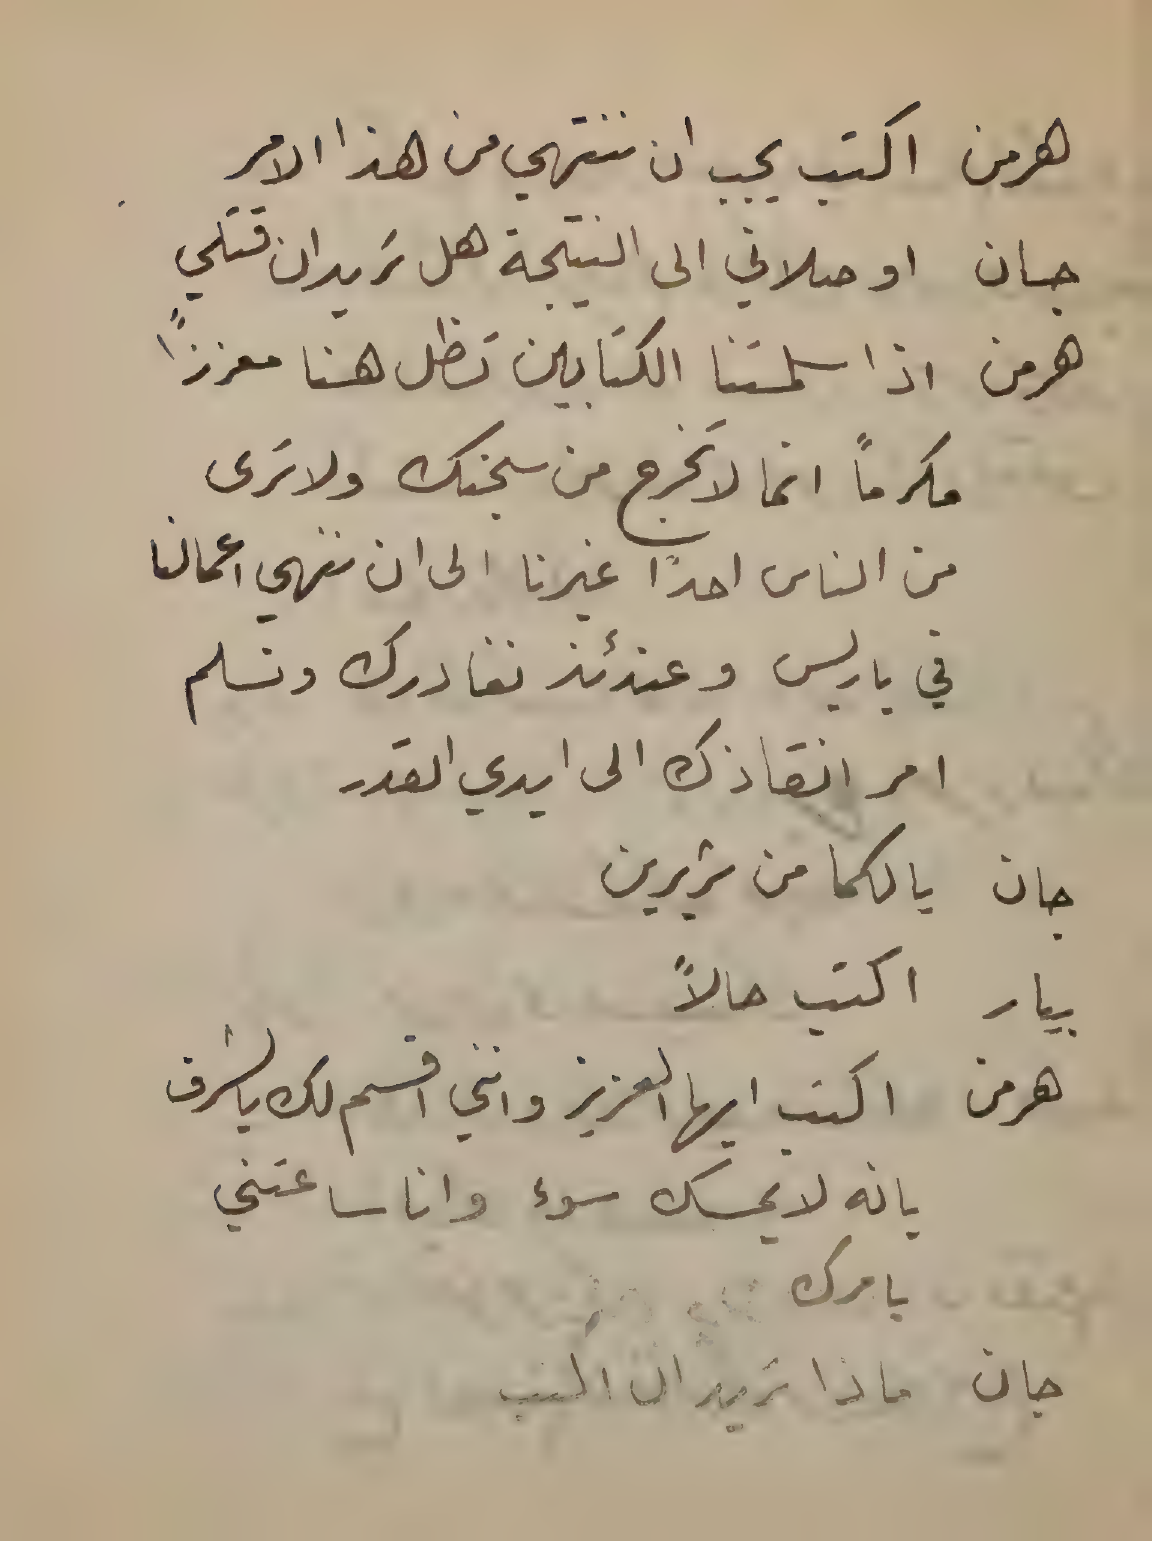 هرمن اكتب يجب ان ننتهي من هذا الامر
جان اوصلاني الى النتيجة هل تريدان قتلي
هرمن اذا سلمتنا الكتابين تظل هنا معززاً
مكرماً انما لا تخرج من سجنك ولا ترى
من الناس احداً غيرنا الى ان ننهي اعمالنا
في باريس وعندئذ نغادرك ونسلم
امر انقاذك الى ايدي القدر
جان يا لكما من شريرين
بيار اكتب حالاً
هرمن اكتب ايها العزيز وانني اقسم لك بالشرف
بانه لا يمسك سوء وانا ساعتني
بامرك
جان ماذا تريدان اكتب